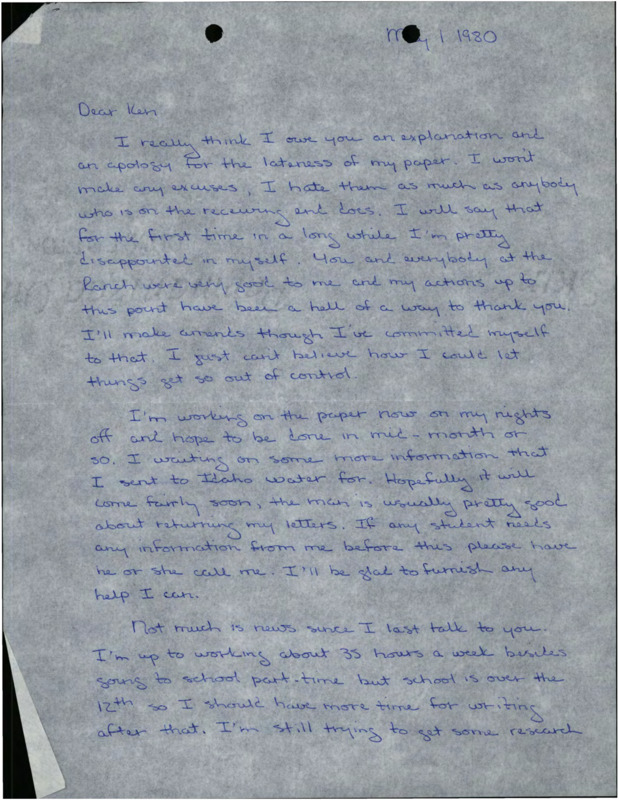 May 1 1980
Dear Ken
I really think I owe you an explanation and
an apology for the lateness of my paper. I won't
make any excuses, I hate them as much as anybody
who is on the receiving end does. I will say that
for the first time in a long while I'm pretty
disappointed in myself. You and everybody at the
Ranch were very good to me and my actions up to
this point have been a hell of a way to thank you.
I'll make amends though I've committed myself
to that. I just can't believe how I could let
things get so out of control.
I'm working on the paper now on my nights
off and hope to be done in mid-month or
so. I waiting on some more information that
I sent to Idaho water for. Hopefully it will
come fairly soon, the man is usually pretty good
about returning my letters. If any student needs
any information from me before this please have
he or she call me. I'll be glad to furnish any
help I can.
Not much is news since I last talk to you.
I'm up to working about 35 hours a week besides
going to school part-time but school is over the
12th so I should have more time for writing
after that. I'm still trying to get some research